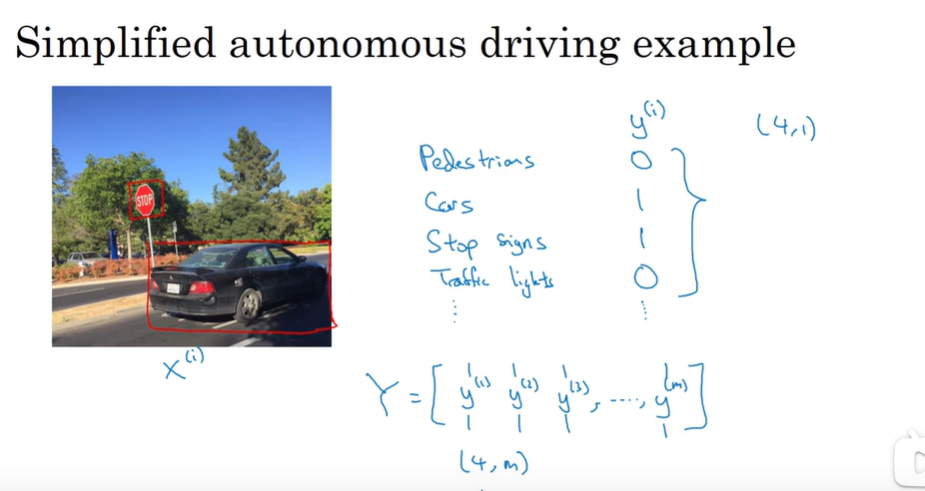 Simplified autonomous driving example
STOP
y^(i) (4,1)
Pedestrians 0
Cars 1
Stop signs 1
Traffic lights 0
⋮ ⋮
x^(i)
Y = [ y^(1) y^(2) y^(3), ...., y^(m) ]
(4, m)